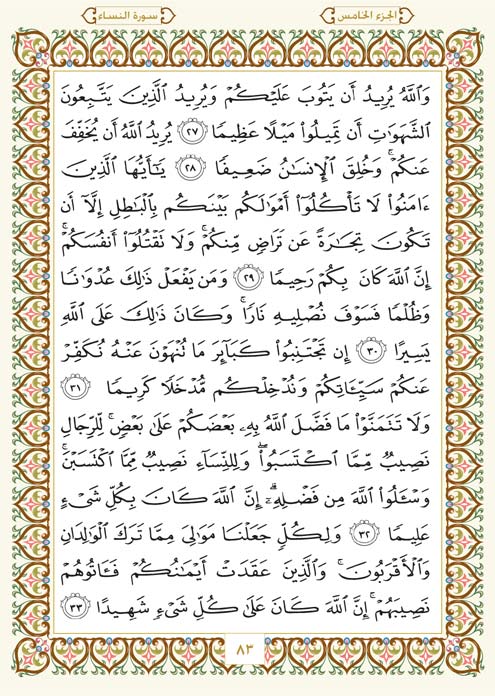 الجزء الخامس
سورة النساء
وَٱللَّهُ يُرِيدُ أَن يَتُوبَ عَلَيۡكُمۡ وَيُرِيدُ ٱلَّذِينَ يَتَّبِعُونَ
ٱلشَّهَوَٰتِ أَن تَمِيلُواْ مَيۡلًا عَظِيمٗا ٢٧ يُرِيدُ ٱللَّهُ أَن يُخَفِّفَ
عَنكُمۡۚ وَخُلِقَ ٱلۡإِنسَٰنُ ضَعِيفٗا ٢٨ يَٰٓأَيُّهَا ٱلَّذِينَ
ءَامَنُواْ لَا تَأۡكُلُوٓاْ أَمۡوَٰلَكُم بَيۡنَكُم بِٱلۡبَٰطِلِ إِلَّآ أَن
تَكُونَ تِجَٰرَةً عَن تَرَاضٖ مِّنكُمۡۚ وَلَا تَقۡتُلُوٓاْ أَنفُسَكُمۡۚ
إِنَّ ٱللَّهَ كَانَ بِكُمۡ رَحِيمٗا ٢٩ وَمَن يَفۡعَلۡ ذَٰلِكَ عُدۡوَٰنٗا
وَظُلۡمٗا فَسَوۡفَ نُصۡلِيهِ نَارٗاۚ وَكَانَ ذَٰلِكَ عَلَى ٱللَّهِ
يَسِيرًا ٣٠ إِن تَجۡتَنِبُواْ كَبَآئِرَ مَا تُنۡهَوۡنَ عَنۡهُ نُكَفِّرۡ
عَنكُمۡ سَيِّـَٔاتِكُمۡ وَنُدۡخِلۡكُم مُّدۡخَلٗا كَرِيمٗا ٣١
وَلَا تَتَمَنَّوۡاْ مَا فَضَّلَ ٱللَّهُ بِهِۦ بَعۡضَكُمۡ عَلَىٰ بَعۡضٖۚ لِّلرِّجَالِ
نَصِيبٞ مِّمَّا ٱكۡتَسَبُواْۖ وَلِلنِّسَآءِ نَصِيبٞ مِّمَّا ٱكۡتَسَبۡنَۚ
وَسۡـَٔلُواْ ٱللَّهَ مِن فَضۡلِهِۦٓۗ إِنَّ ٱللَّهَ كَانَ بِكُلِّ شَيۡءٍ
عَلِيمٗا ٣٢ وَلِكُلّٖ جَعَلۡنَا مَوَٰلِيَ مِمَّا تَرَكَ ٱلۡوَٰلِدَانِ
وَٱلۡأَقۡرَبُونَۚ وَٱلَّذِينَ عَقَدَتۡ أَيۡمَٰنُكُمۡ فَـَٔاتُوهُمۡ
نَصِيبَهُمۡۚ إِنَّ ٱللَّهَ كَانَ عَلَىٰ كُلِّ شَيۡءٖ شَهِيدًا ٣٣
٨٣